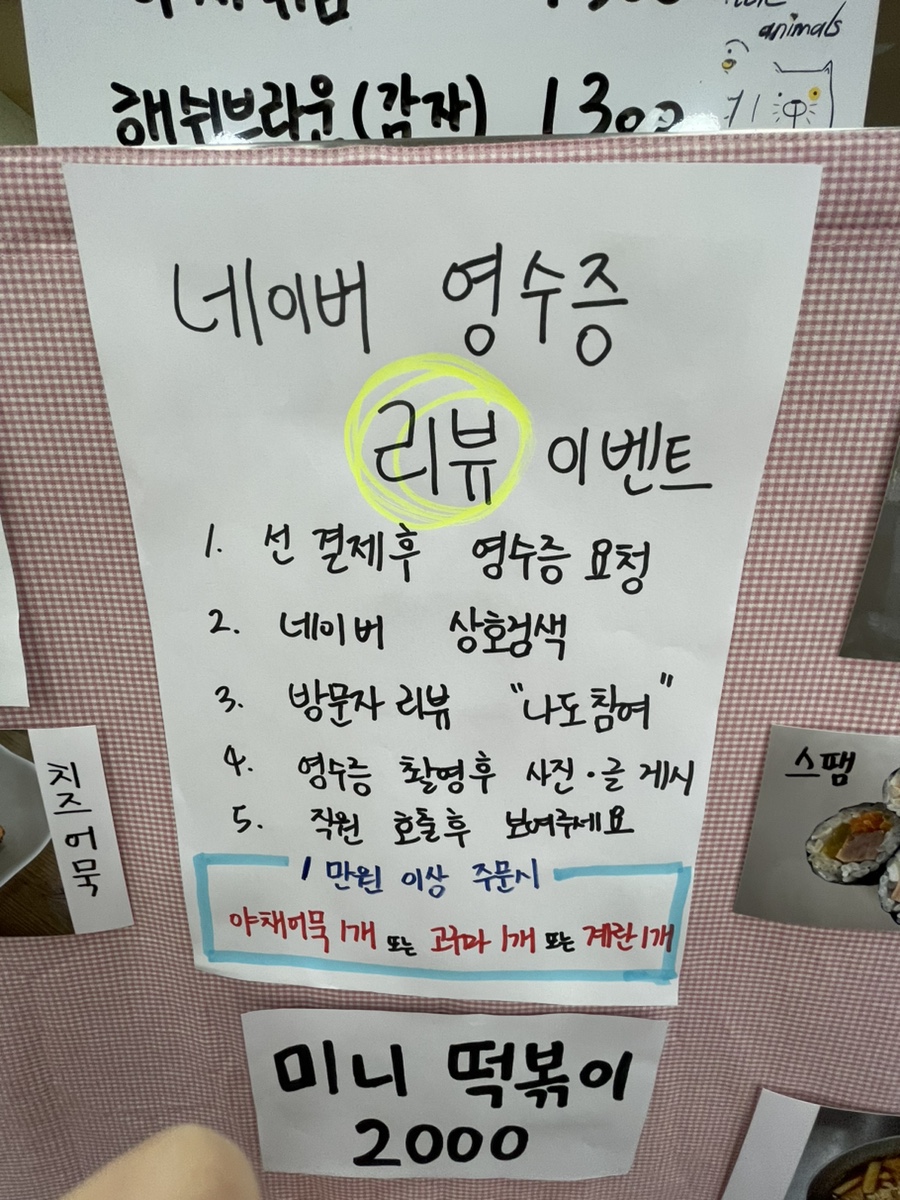 animals
해쉬브라운(감자) 1300
네이버 영수증
리뷰 이벤트
1. 선 결제후 영수증 요청
2. 네이버 상호검색
3. 방문자 리뷰 "나도참여"
4. 영수증 촬영후 사진·글 게시
5. 직원 호출후 보여주세요
1만원 이상 주문시
야채어묵 1개 또는 고구마 1개 또는 계란 1개
치즈어묵
스팸
미니 떡볶이
2000